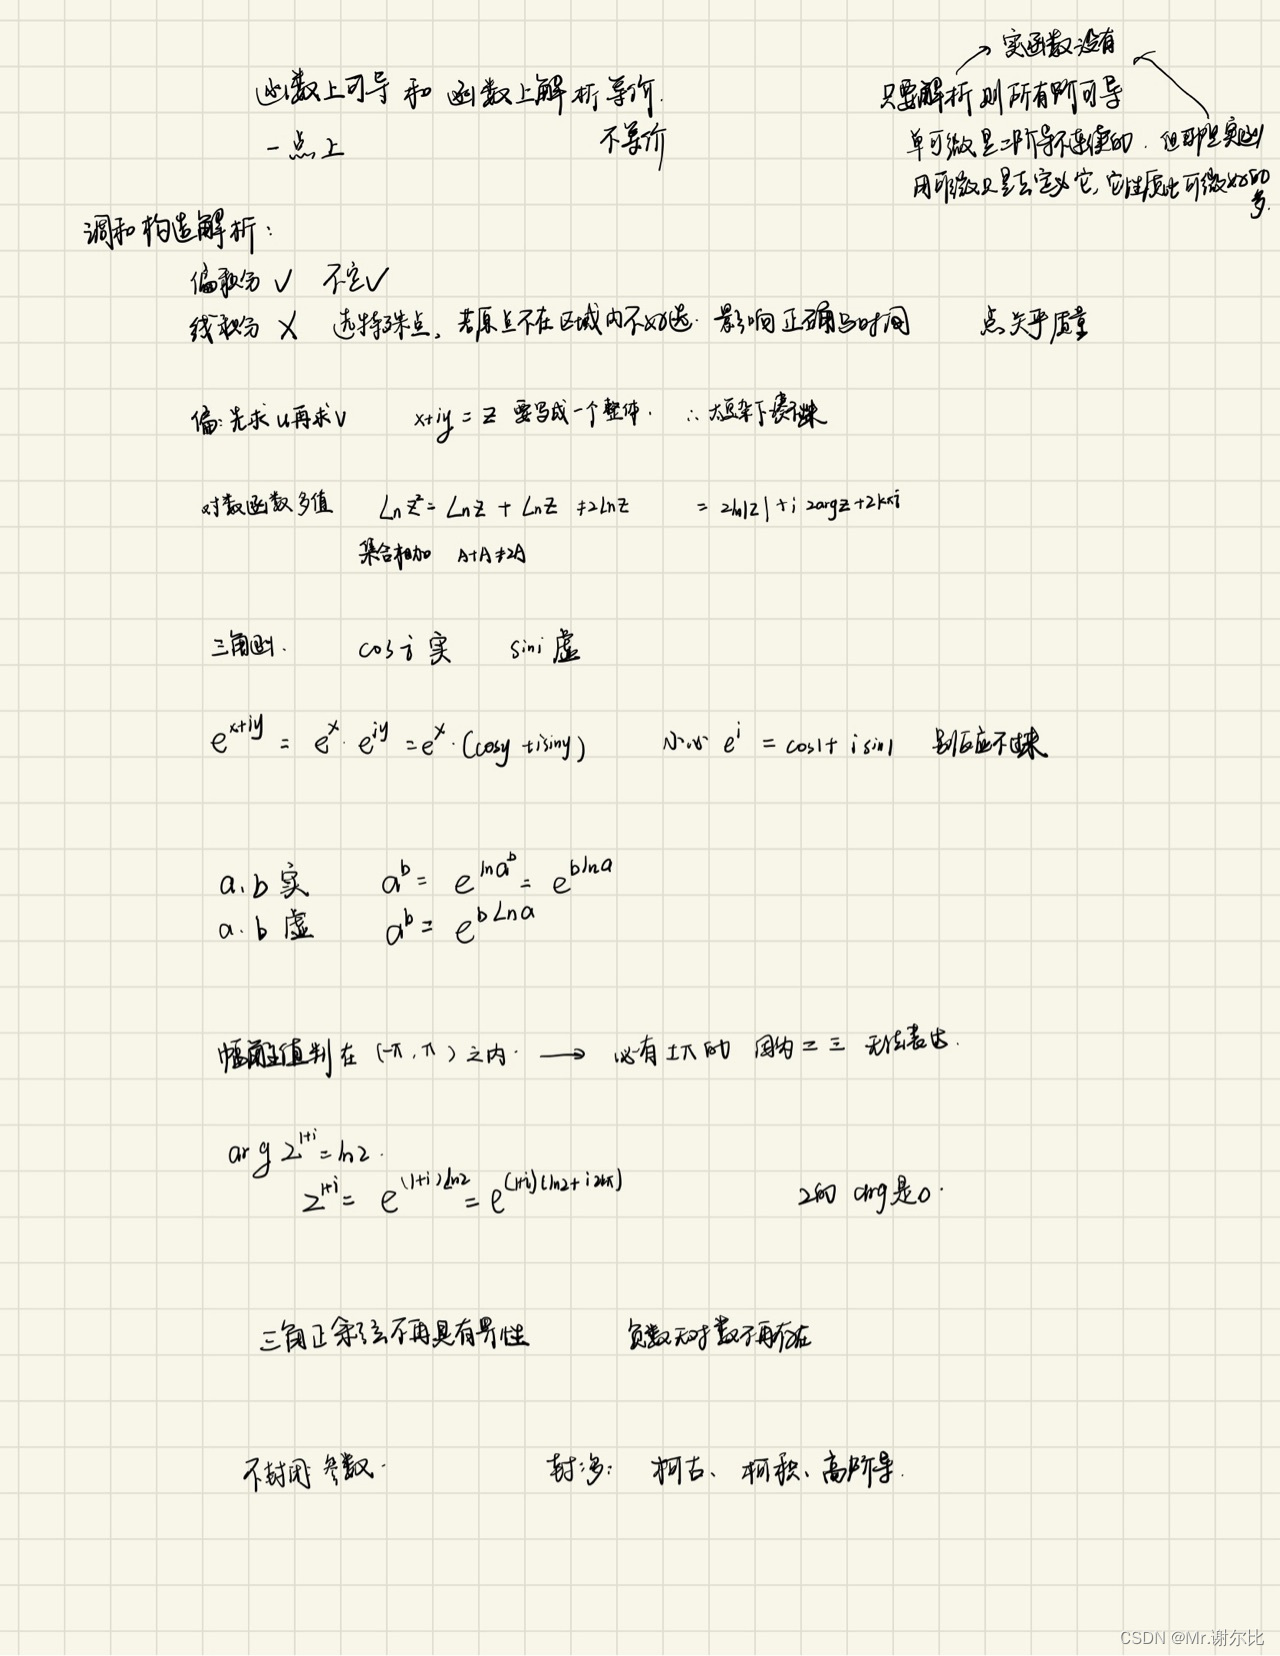 实函数没有
函数上可导 和 函数上解析 等价.
只要解析 则所有阶可导
一点上 不等价
单可微是二阶导不连续的. 但那是实函
用可微只是去定义它, 它性质比可微好的多.
调和构造解析:
偏积分 √ 不定√
线积分 X 选特殊点, 若原点不在区域内不好选. 影响正确与时间 点关乎质量
偏: 先求u再求v x+iy = z 要写成一个整体. ∴ 太复杂下凑不来
对数函数多值 Ln z² = Ln z + Ln z ≠ 2Ln z = 2ln|z| + i 2arg z + 2kπi
集合相加 A+A≠2A
三角函. cos i 实 sin i 虚
e^{x+iy} = e^x · e^{iy} = e^x · (cosy + isiny) 小心 e^i = cos1 + i sin1 别反应不过来
a.b 实 a^b = e^{ln a^b} = e^{b ln a}
a.b 虚 a^b = e^{b Ln a}
幅角主值判在 (-π, π) 之内. → 必有 ±π的 因为 二 三 无法表达.
arg 2^{1+i} = ln2.
2^{1+i} = e^{(1+i)Ln2} = e^{(1+i)(ln2 + i2kπ)} 2的 arg是0.
三角正余弦不再具有界性 负数无对数不再存在
不封闭 参数. 封: 柯古、柯积、高阶导.
CSDN @Mr.谢尔比